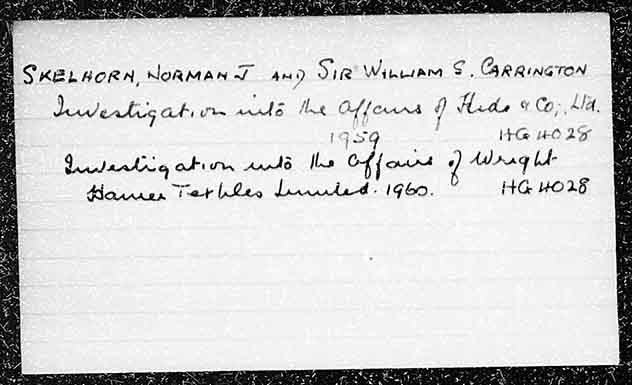 SKELHORN, NORMAN J AND SIR WILLIAM S. CARRINGTON
Investigation into the affairs of Hide & Co., Ltd.
1959 HG 4028
Investigation into the affairs of Wright
Hamer Textiles Limited. 1960. HG 4028